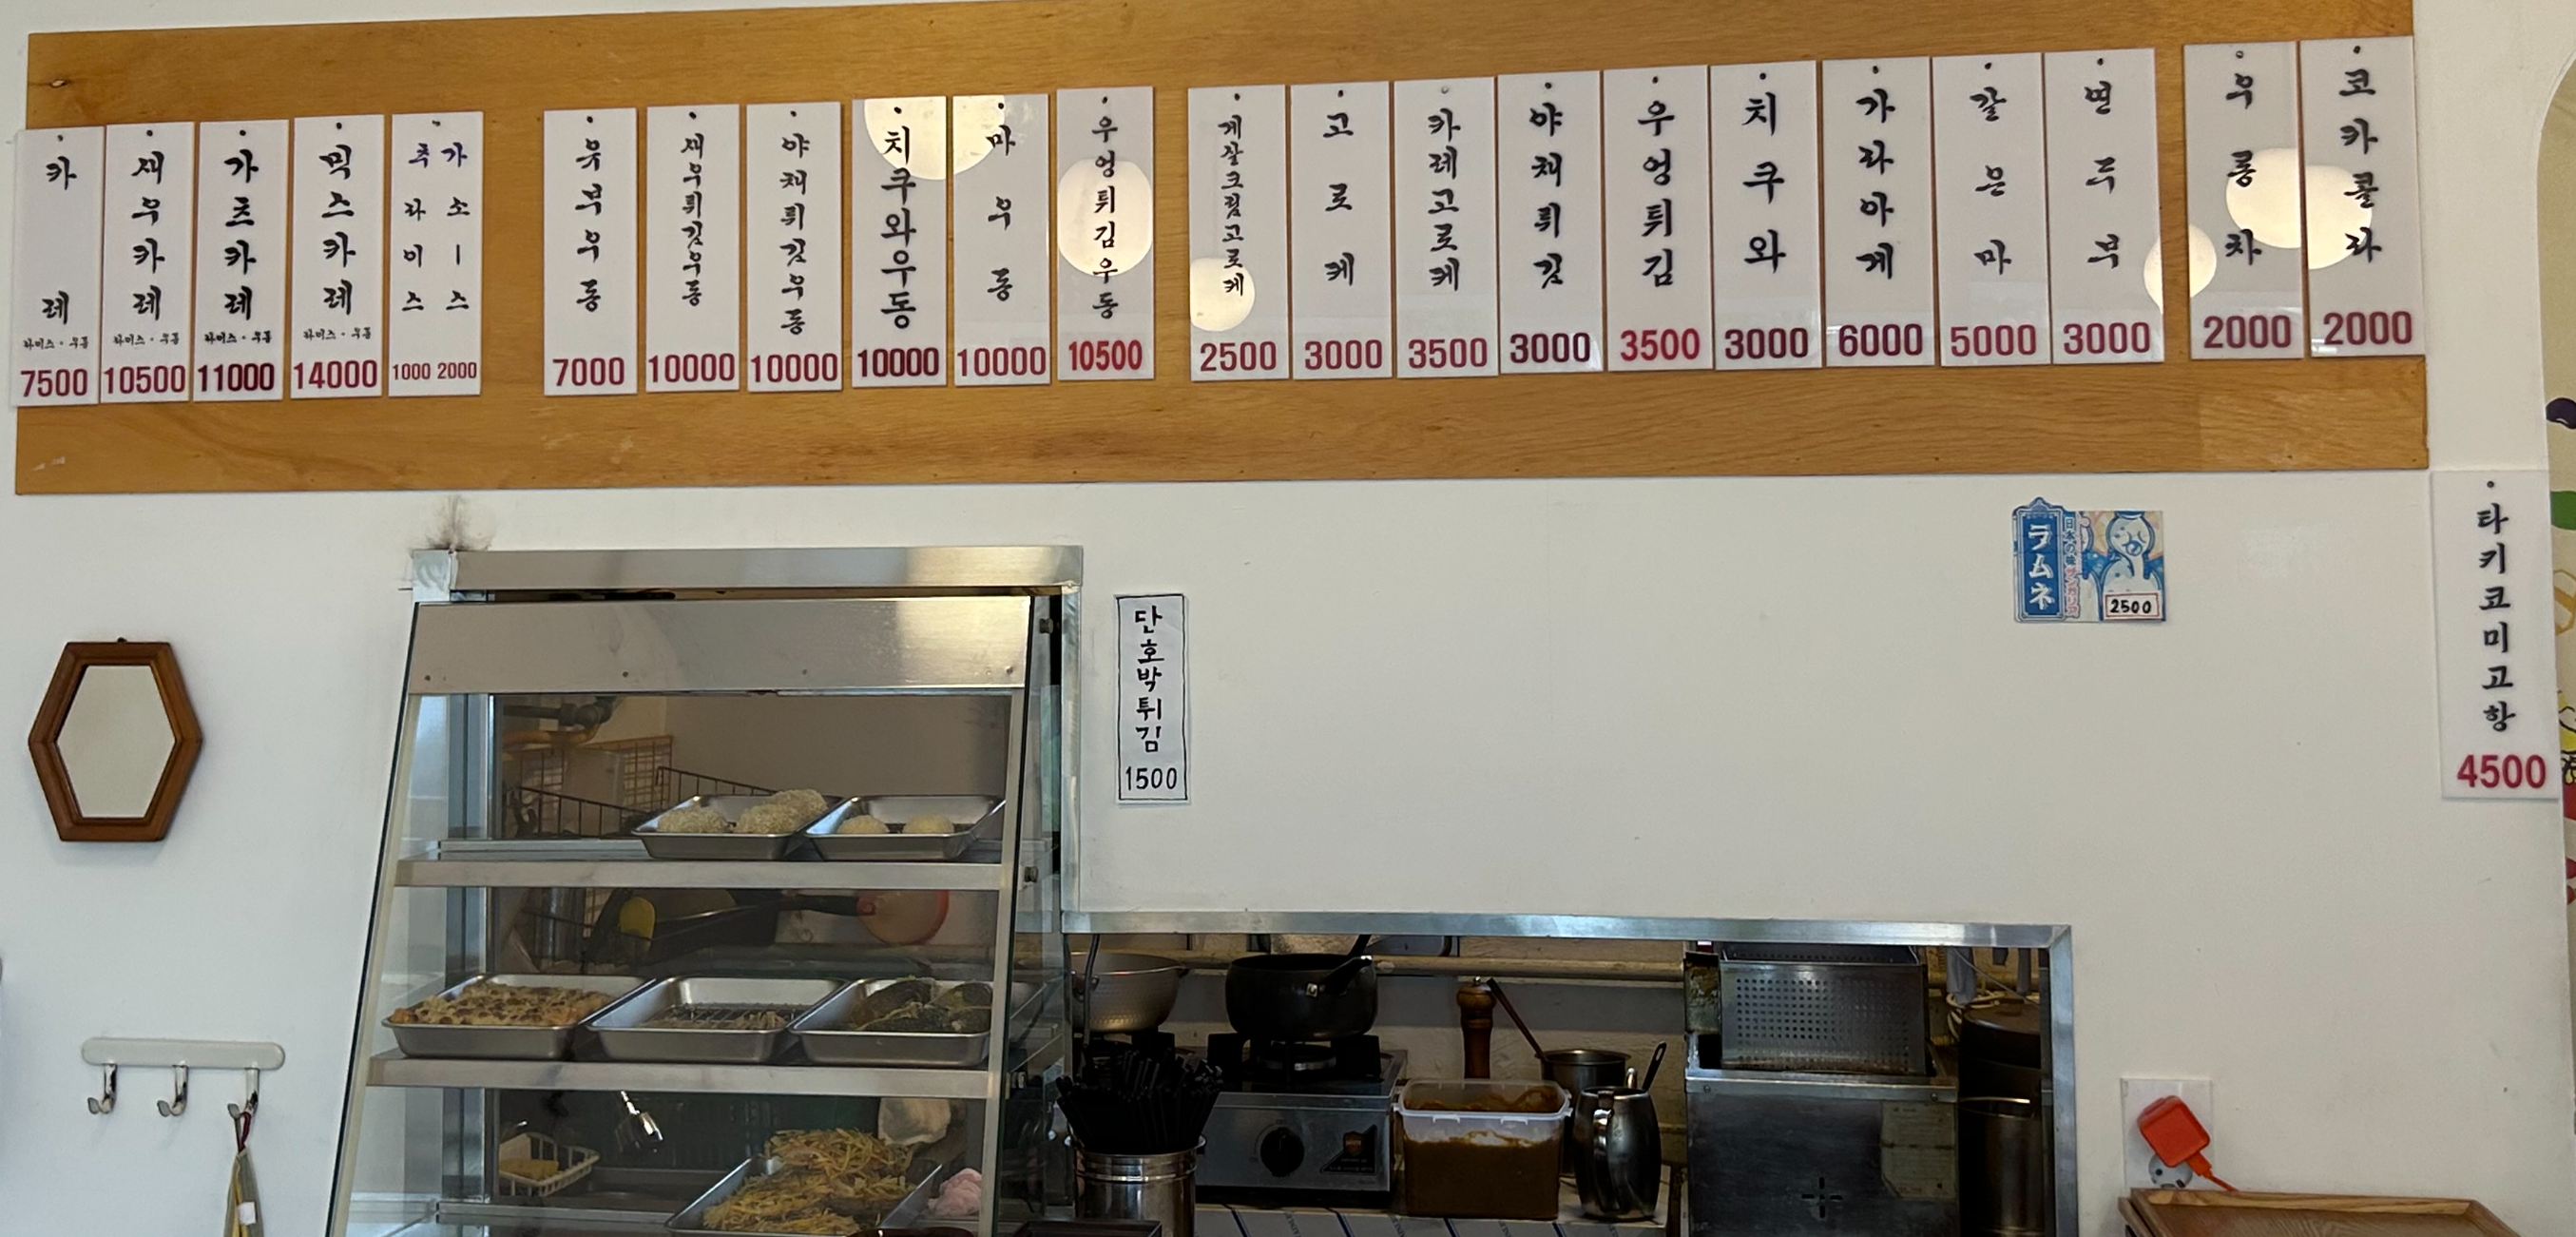 카레
라이스·우동
7500
새우카레
라이스·우동
10500
가츠카레
라이스·우동
11000
믹스카레
라이스·우동
14000
추가
라이스 소ース
1000 2000
유부우동
7000
새우튀김우동
10000
야채튀김우동
10000
치쿠와우동
10000
마우동
10000
우엉튀김우동
10500
게살크림고로케
2500
고로케
3000
카레고로케
3500
야채튀김
3000
우엉튀김
3500
치쿠와
3000
가라아게
6000
갈은마
5000
연두부
3000
우롱차
2000
코카콜라
2000
타키코미고항
4500
ラムネ
2500
단호박튀김
1500